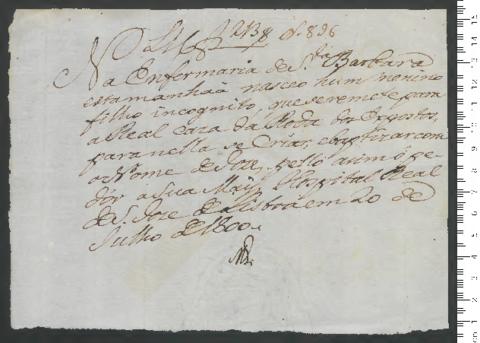 Na Enfermaria de S.ta Barbara
esta manhaã nasceo hum menino
filho incognito, que se remete para
a Real Caza da Roda dos Expostos,
para nella se Criar, e baptizar com
o Nome de Joze, pello asim o pe-
dir a sua May. Hospital Real
de S. Joze de Lisboa em 20 de
Julho de 1800.